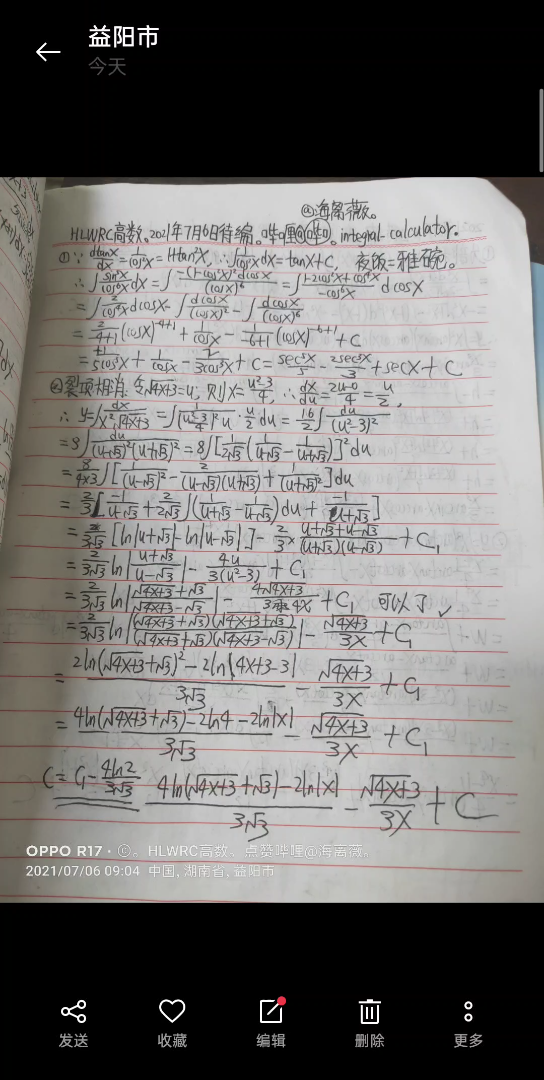 益阳市
今天
@海离薇。
HLWRC高数。2021年7月6日待编。哔哩哔哩。integral-calculator.
①∵ dtanx/dx = 1/cos²x = 1+tan²x, ∴∫1/cos²x dx = tanx + C, 夜饭=雅碗。
∴∫sin⁵x/cos⁶x dx = ∫-(1-cos²x)²dcosx/(cosx)⁶ = ∫1-2cos²x+cos⁴x/-cos⁶x dcosx
= ∫2/cos⁴x dcosx - ∫dcosx/(cosx)² - ∫dcosx/(cosx)⁶
= 2/-4+1 (cosx)^-4+1 + 1/cosx - 1/-6+1 (cosx)^-6+1 + C
= +1/5cos⁵x + 1/cosx - 2/3cos³x + C = sec⁵x/5 - 2sec³x/3 + secx + C
②裂项相消。令√4x+3=u, 则x=u²-3/4, ∴dx/du = 2u-0/4 = u/2,
∴y=∫dx/x²√4x+3 = ∫1/(u²-3/4)²u · u/2 du = 16/2 ∫du/(u²-3)²
= 8∫du/(u-√3)²(u+√3)² = 8∫[1/2√3(1/u-√3 - 1/u+√3)]²du
= 8/4x3 ∫[1/(u-√3)² - 2/(u-√3)(u+√3) + 1/(u+√3)²]du
= 2/3[-1/u-√3 + 2/2√3 ∫(1/u+√3 - 1/u-√3)du + -1/u+√3]
= 2/3√3 [ln|u+√3| - ln|u-√3|] - 2/3 × u+√3+u-√3/(u+√3)(u-√3) + C₁
= 2/3√3 ln|u+√3/u-√3| - 4u/3(u²-3) + C₁
= 2/3√3 ln|√4x+3+√3/√4x+3-√3| - 4√4x+3/3×4x + C₁ 可以了✓
= 2/3√3 ln|(√4x+3+√3)(√4x+3+√3)/(√4x+3+√3)(√4x+3-√3)| - √4x+3/3x + C₁
= 2ln(√4x+3+√3)² - 2ln|4x+3-3|/3√3 - √4x+3/3x + C₁
= 4ln(√4x+3+√3) - 2ln4 - 2ln|x|/3√3 - √4x+3/3x + C₁
C = C₁ - 4ln2/3√3 4ln(√4x+3+√3) - 2ln|x|/3√3 - √4x+3/3x + C
OPPO R17 · ©。HLWRC高数、点赞哔哩@海离薇。
2021/07/06 09:04 中国, 湖南省, 益阳市
发送 收藏 编辑 删除 更多